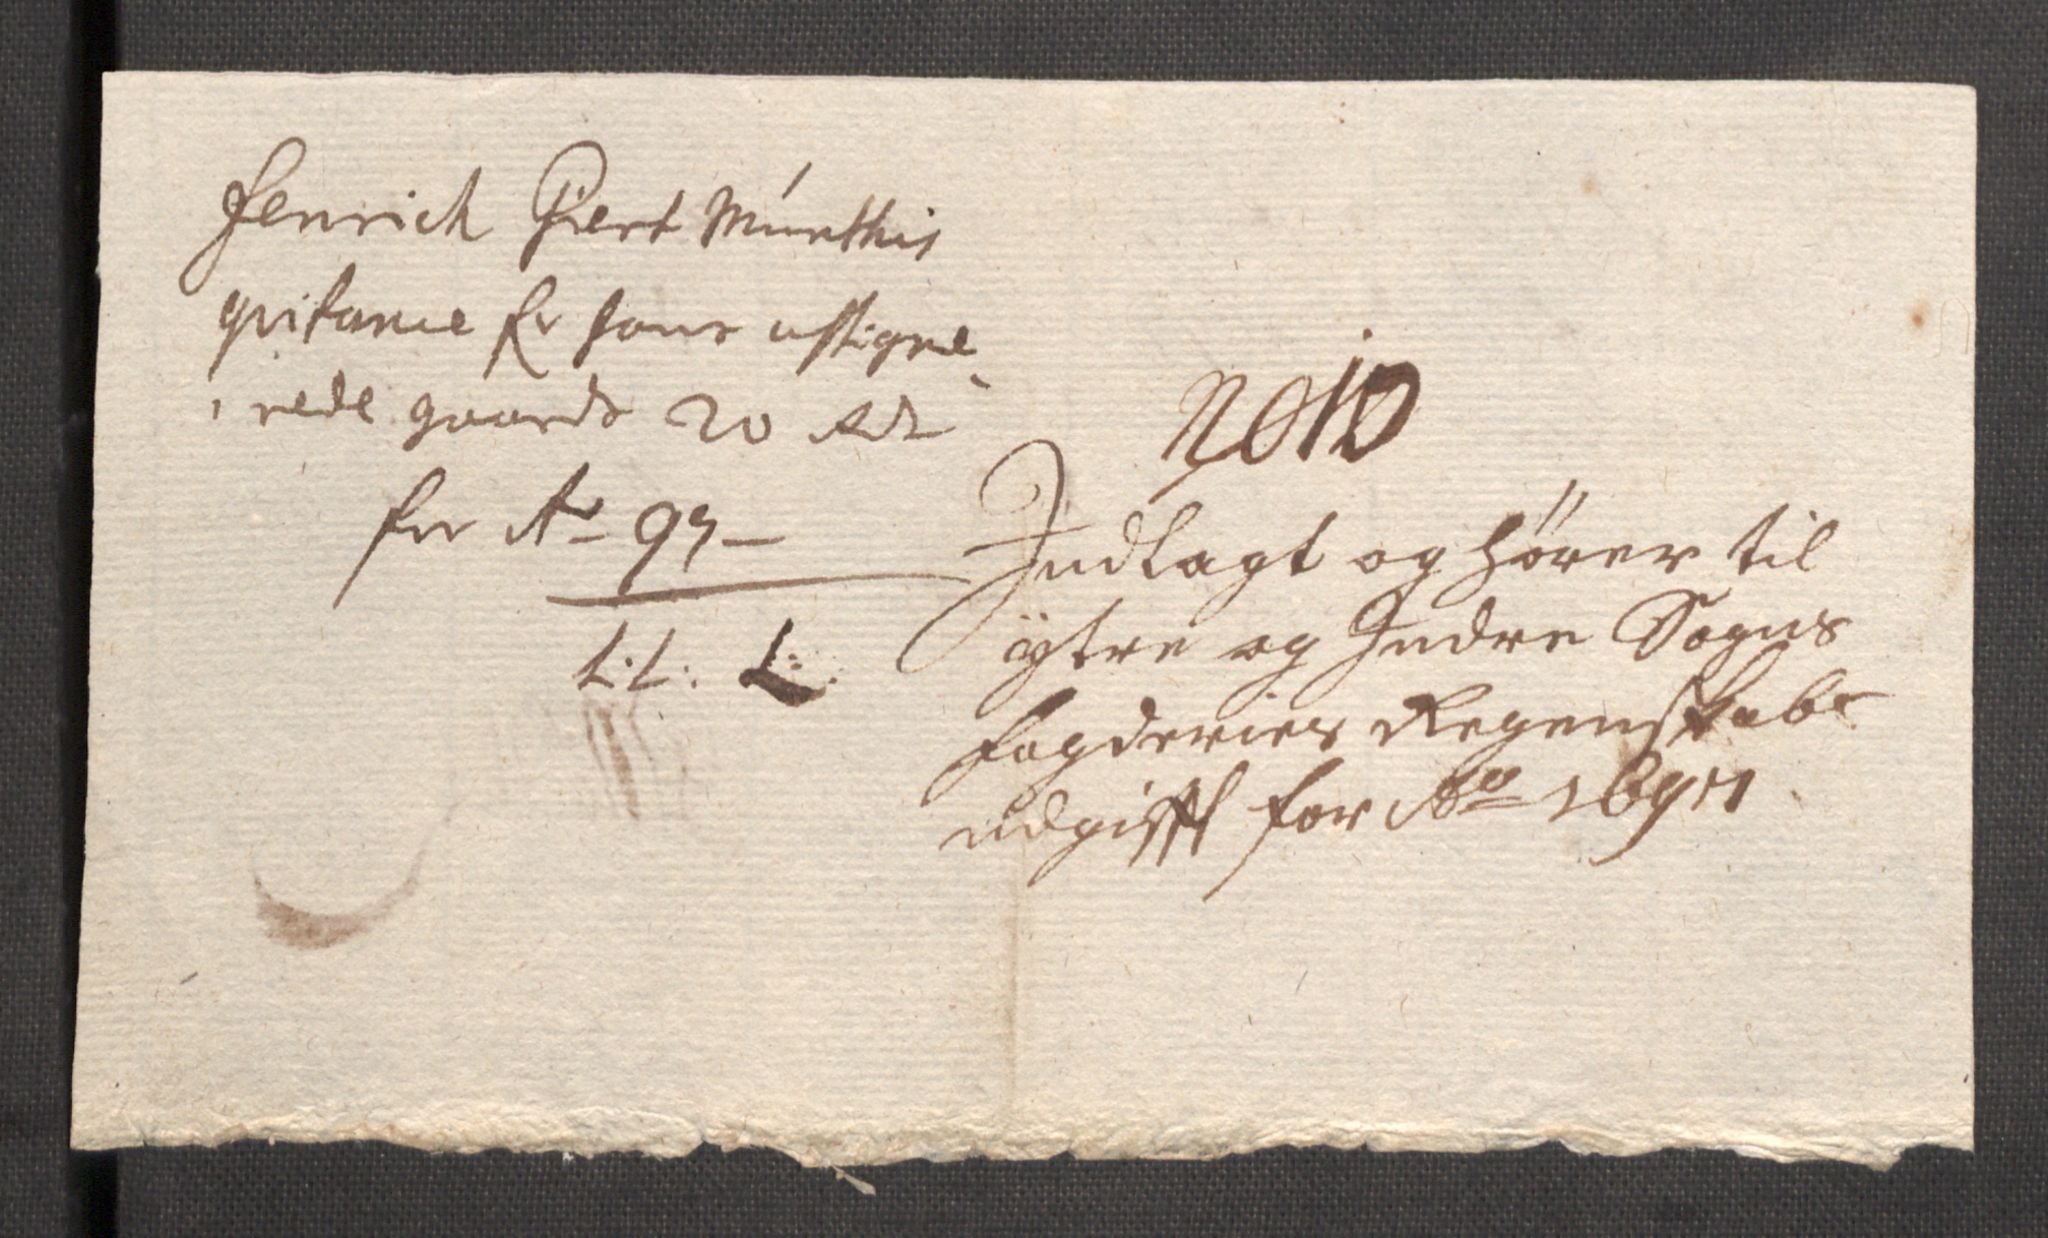 Henrich Giert Münthis
qvitance for hans assigne
rede gaards 20 Rdr
for Ao 97
Lit: L:
No 10
Indlagt og hörer til
ÿtre og Indre Sogns
fogderies Regenskabs
udgifft for Ao 1697